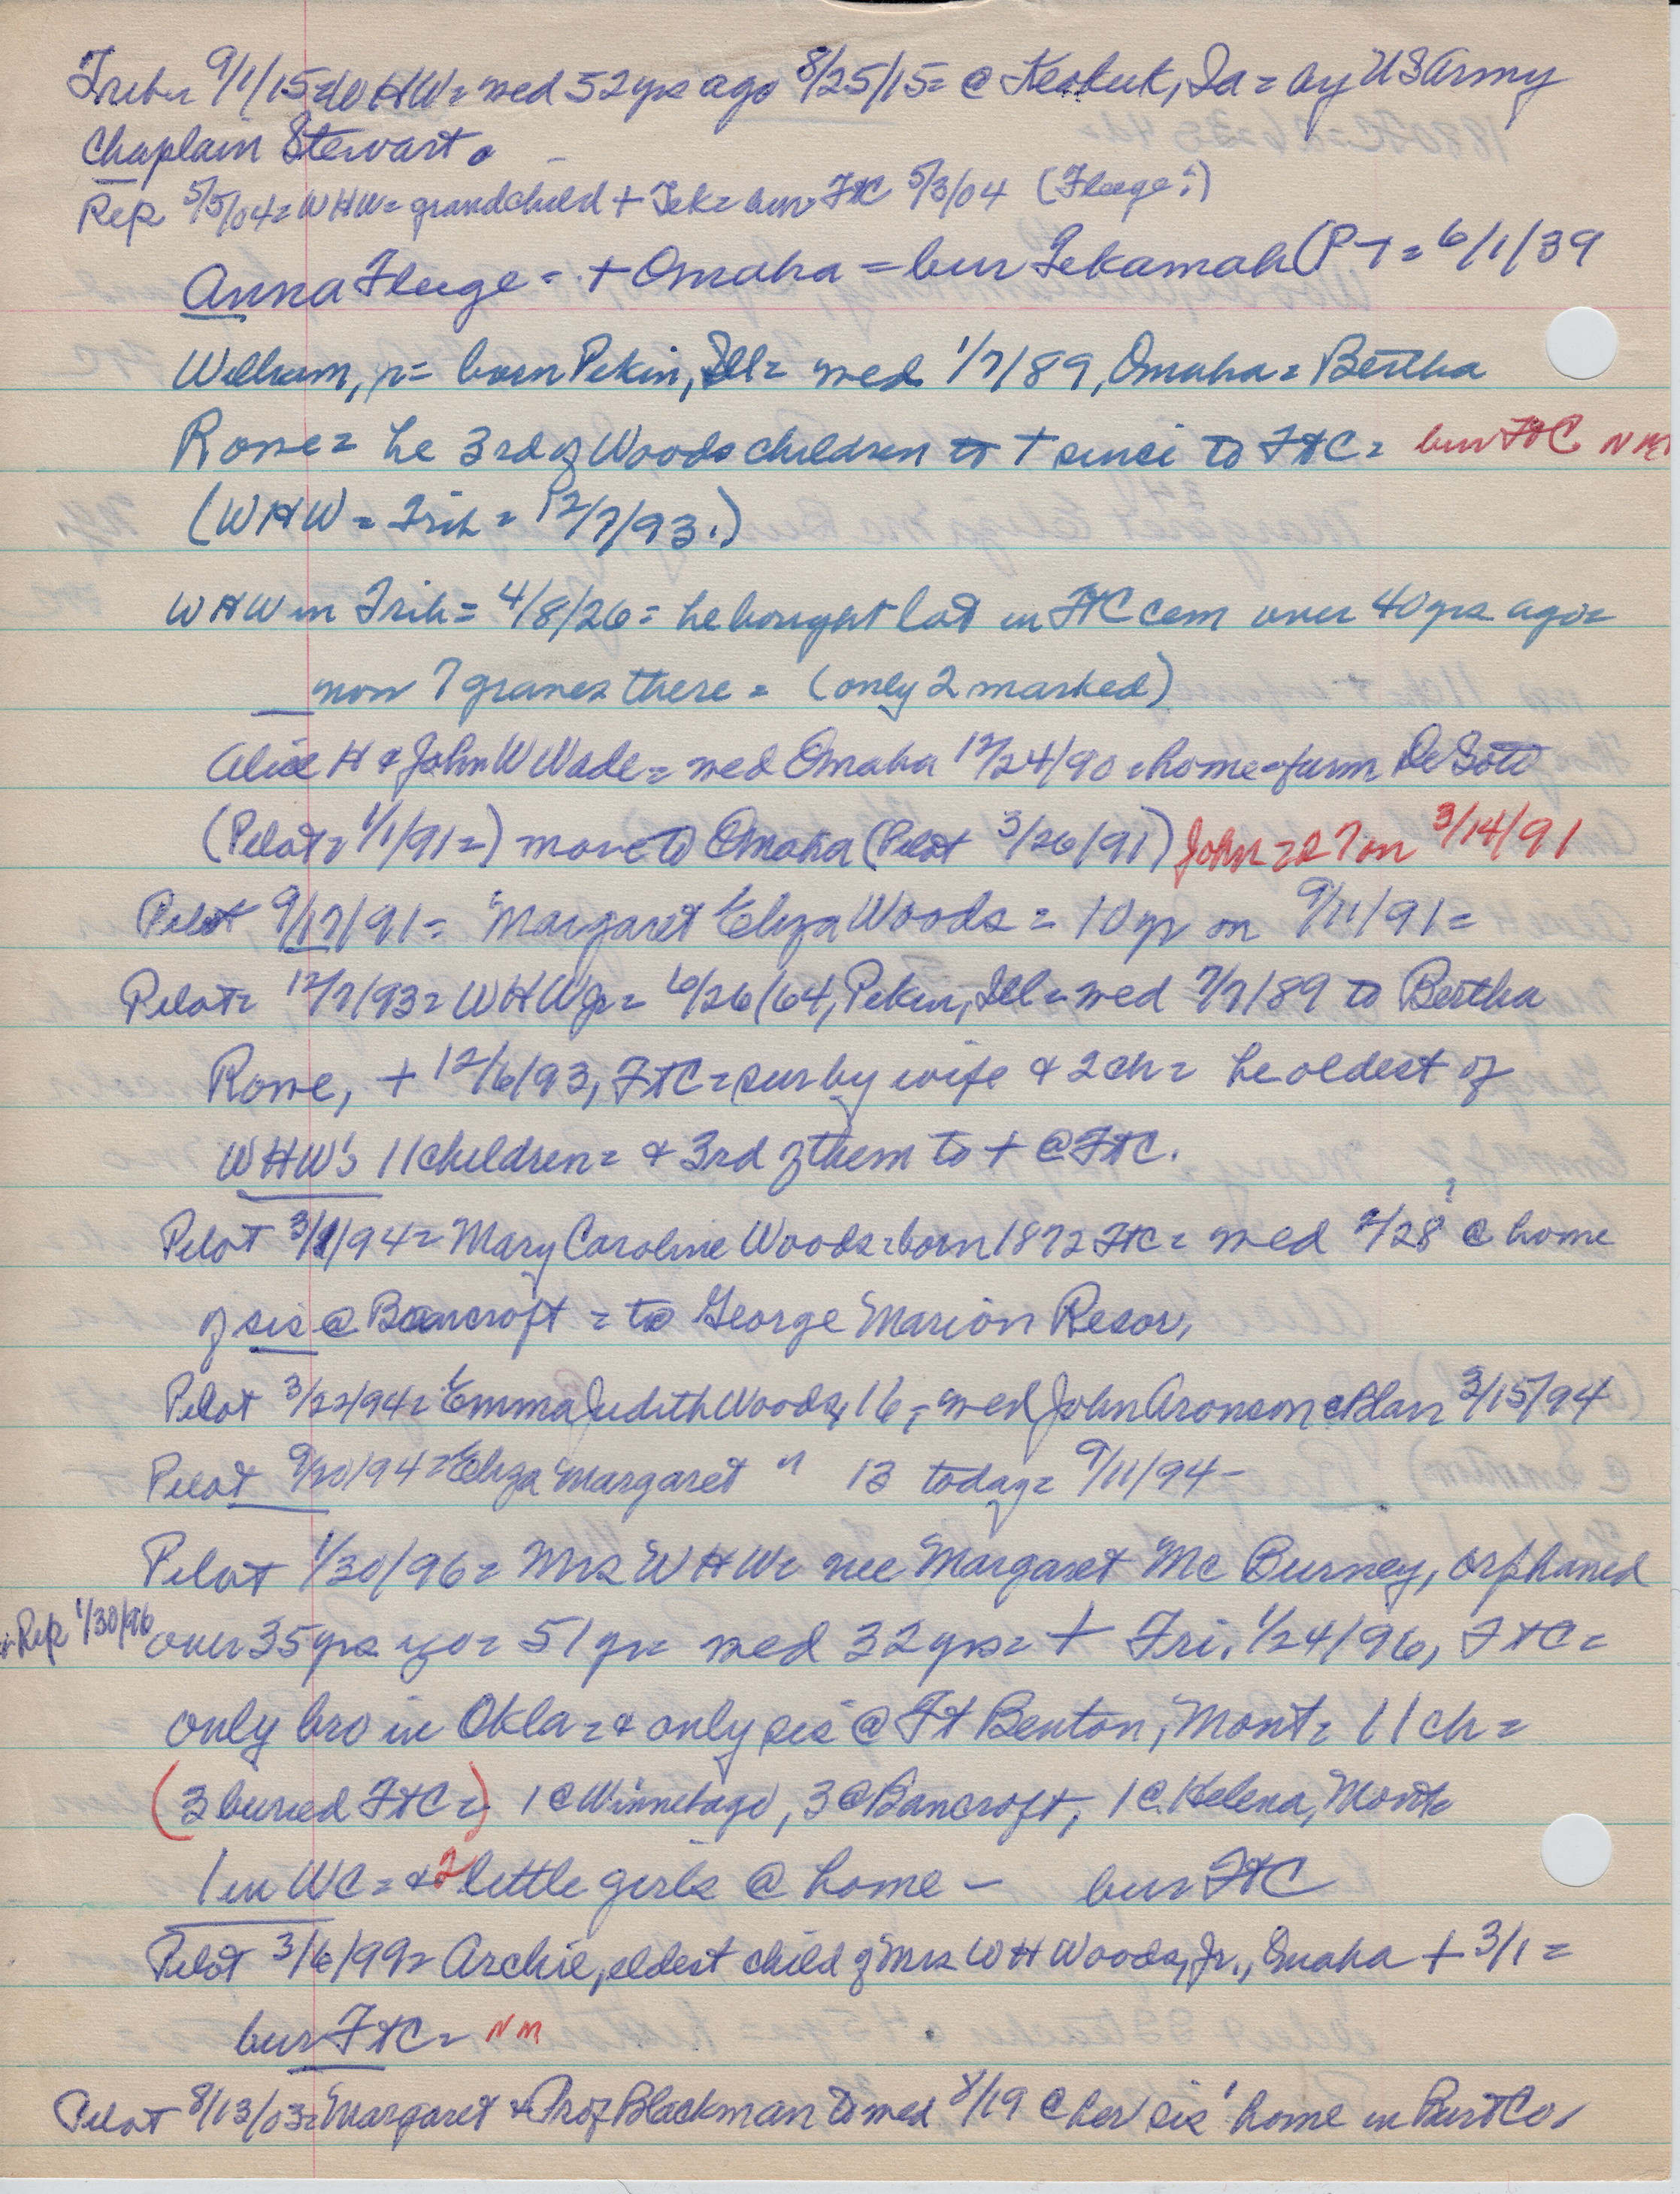 Trib 9/1/15= WHW= med 52 yrs ago 8/25/15= @ Keokuk, Ia= by US Army
Chaplain Stewart.
Rep 5/5/04= WHW= grandchild + Tek= bur FtC 5/3/04 (Fleege?)
Anna Fleege= + Omaha= bur Tekamah (PT= 6/1/39
William, jr= born Pekin, Ill= med 1/7/89, Omaha= Bertha
Rowe= he 3rd of Woods children to + since to FtC= bur FtC NM
(WHW= Trib= 12/7/93.)
WHW in Trib= 4/8/26= he bought lot in FtC cem over 40 yrs ago=
now 7 graves there= (only 2 marked)
Alice H & John W Wade= med Omaha 12/24/90= home= farm DeSoto
(Pilot= 1/1/91=) move to Omaha (Pilot 3/26/91) John= 27 on 3/14/91
Pilot 9/17/91= Margaret Eliza Woods= 10 yr on 9/11/91=
Pilot= 12/7/93= WHW jr= 6/26/64, Pekin, Ill= med 7/7/89 to Bertha
Rowe, + 12/6/93, FtC= sur by wife & 2 ch= he oldest of
WHW's 11 children= & 3rd of them to + @ FtC.
Pilot 3/1/94= Mary Caroline Woods= born 1872 FtC= med 2/28? @ home
of sis @ Bancroft= to George Marion Resor,
Pilot 3/22/94= Emma Judith Woods, 16,= med John Aronson @ Blair 3/15/94
Pilot 9/20/94= Eliza Margaret " 13 today= 9/11/94-
Pilot 1/30/96= Mrs WHW= nee Margaret McBurney, orphaned
Rep 1/30/96 over 35 yrs ago= 51 yr= med 32 yrs= + Fri. 1/24/96, FtC=
only bro in Okla= & only sis @ Ft Benton, Mont= 11 ch=
(3 buried FtC=) 1 @ Winnebago, 3 @ Bancroft, 1 @ Helena, Mont
1 in WC= & 2 little girls @ home- bur FtC
Pilot 3/16/99= Archie, eldest child of Mrs WH Woods, Jr., Omaha + 3/1=
bur FtC= NM
Pilot 8/13/03= Margaret & Prof Blackman to med 8/19 @ her sis' home in Burt Co,